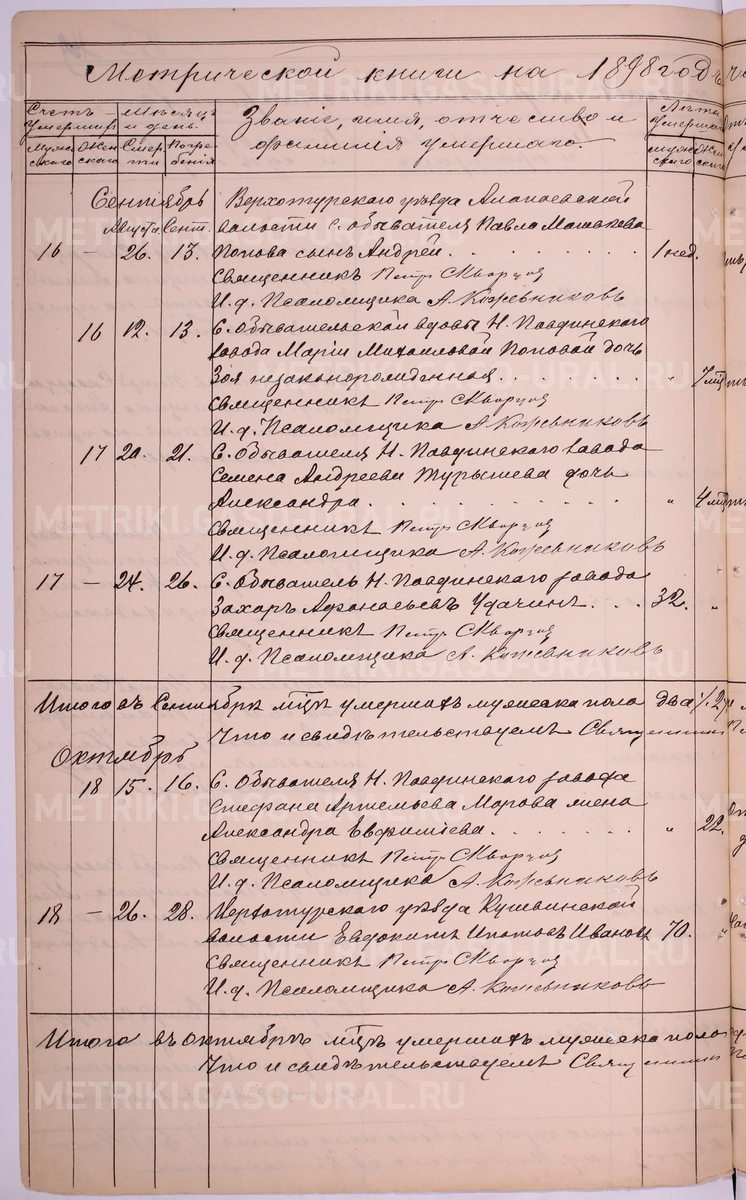 Метрической книги на 1898 годъ
Счетъ умершихъ
Мѣсяцъ и день.
Званіе, имя, отчество и фамилія умершаго.
Лѣта умершаго
Мужескаго
Женскаго
Смерти
Погребенія
мужескаго
Женскаго
Сентябрь Верхотурскаго уѣзда Алапаевской
Августа Сент. волости с. обывателя Павла
16 — 26. 13. Попова сынъ Андрей . . . 1 нед.
Священникъ Петръ Скворцов
И. д. Псаломщика А. Кожевниковъ
16 12. 13. С. Обывательской вдовы Н. Павдинскаго
завода Маріи Михаиловой Поповой дочь
Зоя незаконорожденная . . . „ 7 мц
Священникъ Петръ Скворцов
И. д. Псаломщика А. Кожевниковъ
17 20. 21. С. Обывателя Н. Павдинскаго завода
Семена Андреева Турышева дочь
Александра . . . „ 4 мц
Священникъ Петръ Скворцов
И. д. Псаломщика А. Кожевниковъ
17 — 24. 26. С. Обыватель Н. Павдинскаго завода
Захаръ Афанасьевъ Удачинъ . . . 32. „
Священникъ Петръ Скворцов
И. д. Псаломщика А. Кожевниковъ
Итого въ Сентябрѣ мцѣ умершихъ мужеска пола два /2/
Что и свидѣтельствуемъ Священник
Октябрь
18 15. 16. С. Обывателя Н. Павдинскаго завода
Стефана Артемьева Марова жена
Александра Евфиміева . . . „ 22.
Священникъ Петръ Скворцов
И. д. Псаломщика А. Кожевниковъ
18 — 26. 28. Верхотурскаго уѣзда Кушвинской
волости Евдокимъ Ипатовъ Иванов 70. „
Священникъ Петръ Скворцов
И. д. Псаломщика А. Кожевниковъ
Итого въ Октябрѣ мцѣ умершихъ мужеска пола
Что и свидѣтельствуемъ Священник
METRIKI.GASO-URAL.RU